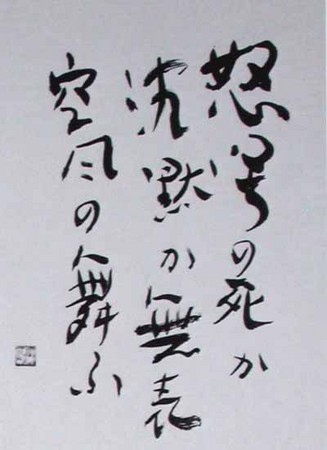 怒号の死か
沈黙か無表
空尽の舞ふ